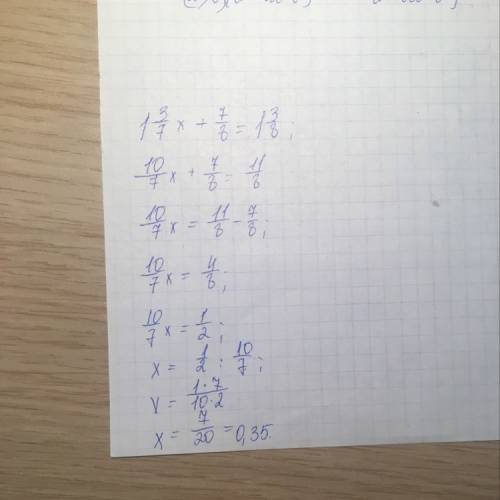 1 3/7 x + 7/8 = 1 3/8;
10/7 x + 7/8 = 11/8
10/7 x = 11/8 - 7/8;
10/7 x = 4/8;
10/7 x = 1/2;
x = 1/2 : 10/7;
x = 1·7/10·2
x = 7/20 = 0,35.